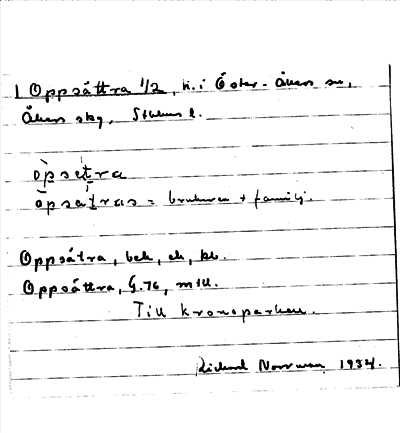 1 Oppsättra 1/2, h. i Öster-Åkers sn,
Åkers skg, Sthlms l.
òpsetra
òpsetras = brukaren + familj.
Oppsätra, bek, ek, kb.
Oppsättra, G.76, mtll.
Till kronoparken.
Rickard Norrman 1934.